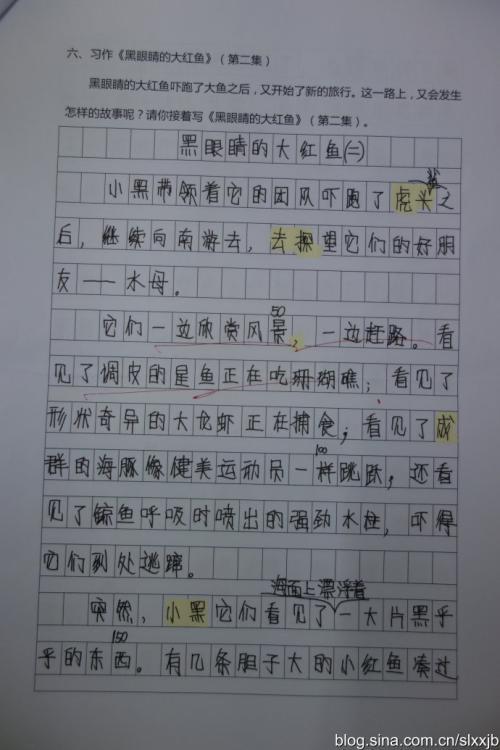 六、习作《黑眼睛的大红鱼》（第二集）
黑眼睛的大红鱼吓跑了大鱼之后，又开始了新的旅行。这一路上，又会发生
怎样的故事呢？请你接着写《黑眼睛的大红鱼》（第二集）。
黑眼睛的大红鱼（二）
小黑带领着它的团队吓跑了虎头鲨之
后，继续向南游去，去探望它们的好朋
友——水母。
50
它们一边欣赏风景，一边赶路。看
见了调皮的星鱼正在吃珊瑚礁；看见了
形状奇异的大龙虾正在捕食；看见了成
100
群的海豚像健美运动员一样跳跃，还看
见了鲸鱼呼吸时喷出的强劲水柱，吓得
它们到处逃蹿。
海面上漂浮着
突然，小黑它们看见了一大片黑乎
150
乎的东西。有几条胆子大的小红鱼凑过
blog.sina.com.cn/slxxjb